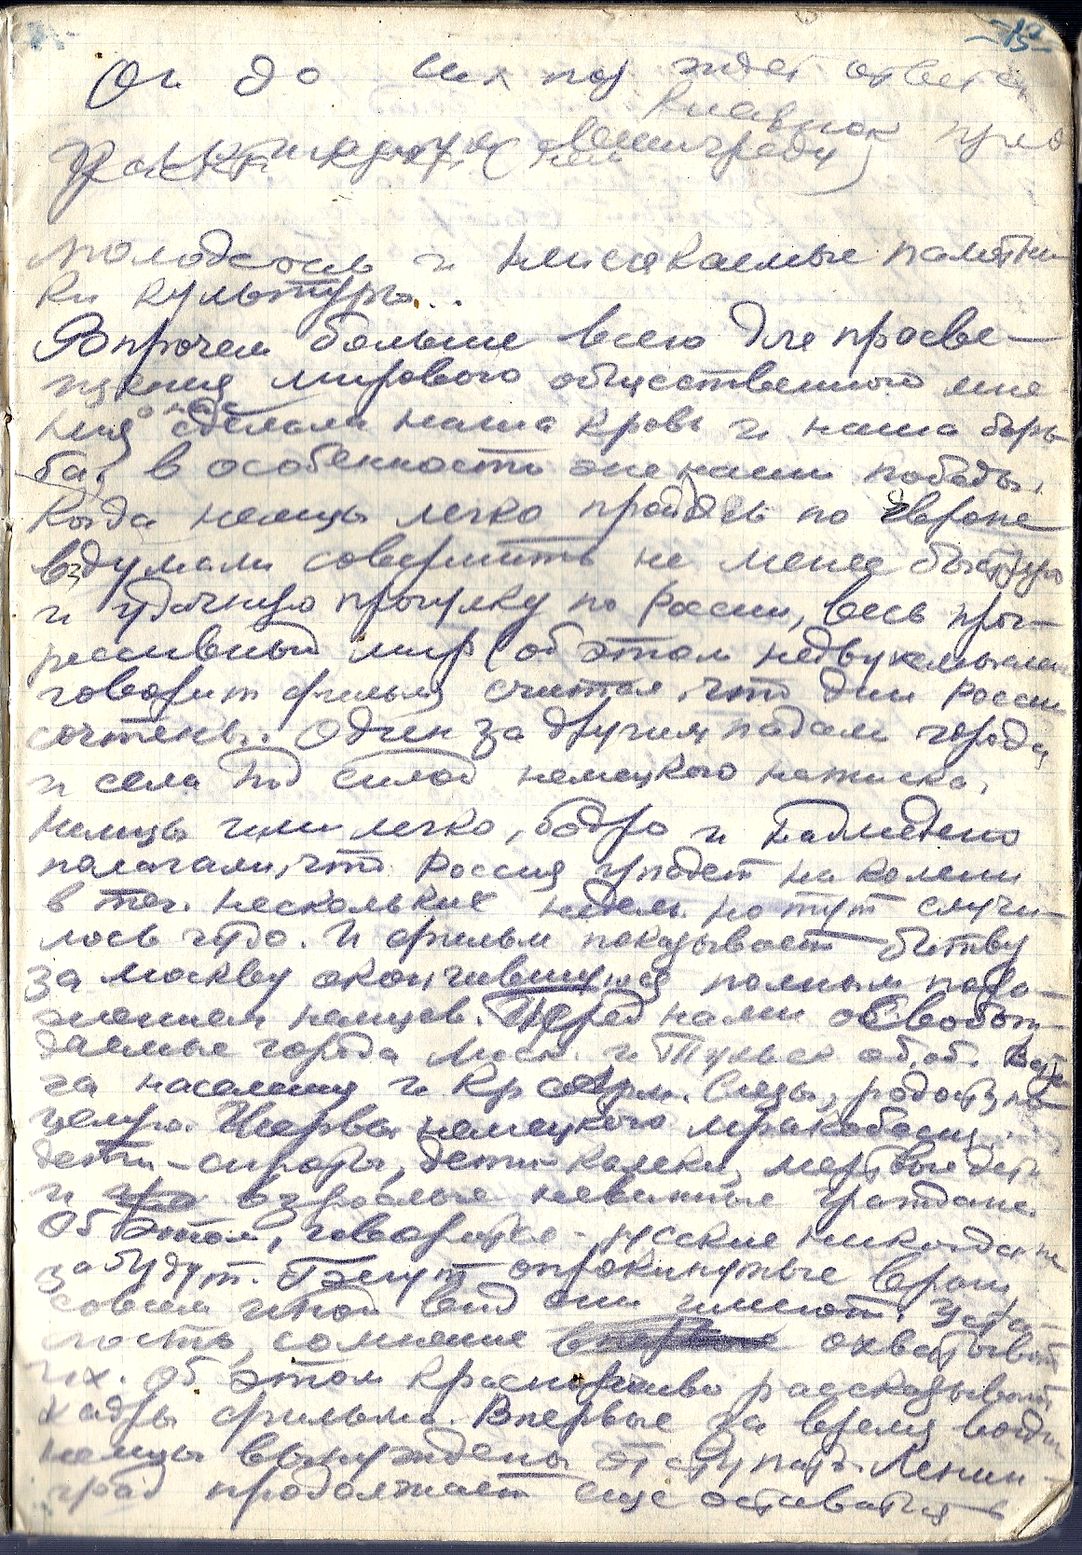 -15-
Он до сих пор ждет ответа
молодость и неисчекаемые памятни
ки культуры...
Впрочем больше всего для просве-
щения мирового общественного мне
ния о нас сделали наша кровь и наша борь
ба, в особенности же наши победы.
Когда немцы легко пройдясь по Европе
вздумали совершить не менее быструю
и удачную прогулку по России, весь прог-
рессивный мир (об этом недвусмысленно
говорит фильм) считал, что дни России
сочтены. Один за другим падали города
и села под силой немецкого натиска.
Немцы шли легко, бодро и
полагали, что Россия упадет на колени
в теч. нескольких недель. но тут случи-
лось чудо. И фильм показывает битву
за Москву окончившуюся полным пора-
жением немцев. Перед нами освобож-
даемые города Моск. и Тульск. об.об. Встре
ча населения и Кр. Арм. Слезы, радость,
поцелуи. Жертвы немецкого мракобесия:
дети-сироты, дети-калеки, мертвые дети
и взрослые невинные граждане.
Об этом, говорится - русские никогда не
забудут. Бегут опрокинутые враги,
совсем иной вид они имеют. Уста-
лость, сомнение охватывает
их. Об этом красноречиво рассказывают
кадры фильма. Впервые за время войны
немцы вынуждены отступать. Ленин-
град продолжает еще оставаться